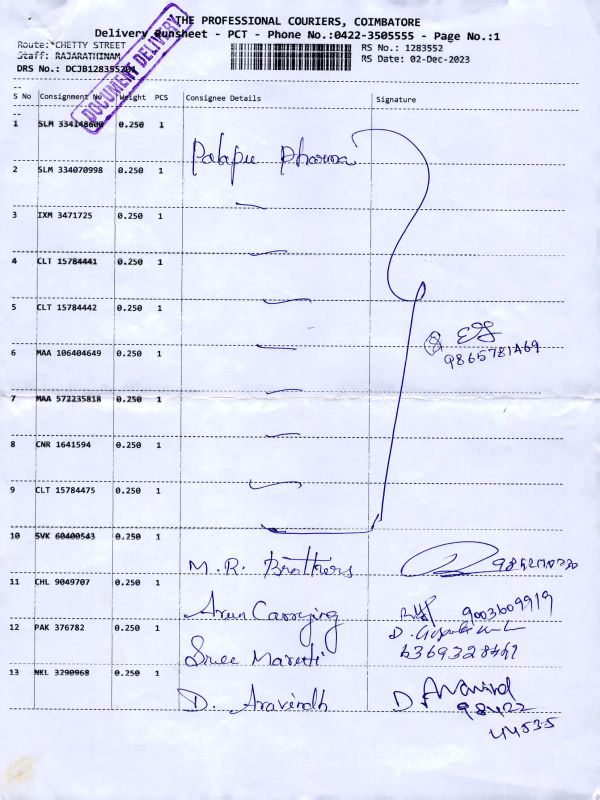 THE PROFESSIONAL COURIERS, COIMBATORE
Delivery Runsheet - PCT - Phone No.:0422-3505555 - Page No.:1
Route:*CHETTY STREET
Staff: RAJARATHINAM
DRS No.: DCJB128355201
RS No.: 1283552
RS Date: 02-Dec-2023
DOCUMENT DELIVERY
S No Consignment No Weight PCS Consignee Details Signature
1 SLM 334148600 0.250 1
Pharma
2 SLM 334070998 0.250 1
3 IXM 3471725 0.250 1
4 CLT 15784441 0.250 1
5 CLT 15784442 0.250 1
9865781469
6 MAA 106404649 0.250 1
7 MAA 572235818 0.250 1
8 CNR 1641594 0.250 1
9 CLT 15784475 0.250 1
10 SVK 60400543 0.250 1
M. R. Brothers
11 CHL 9049707 0.250 1
Arun Carrying 9003609919
12 PAK 376782 0.250 1
Sree Maruti 6369328461
13 NKL 3290968 0.250 1
D. Aravindh D. Aravind
98422
44535